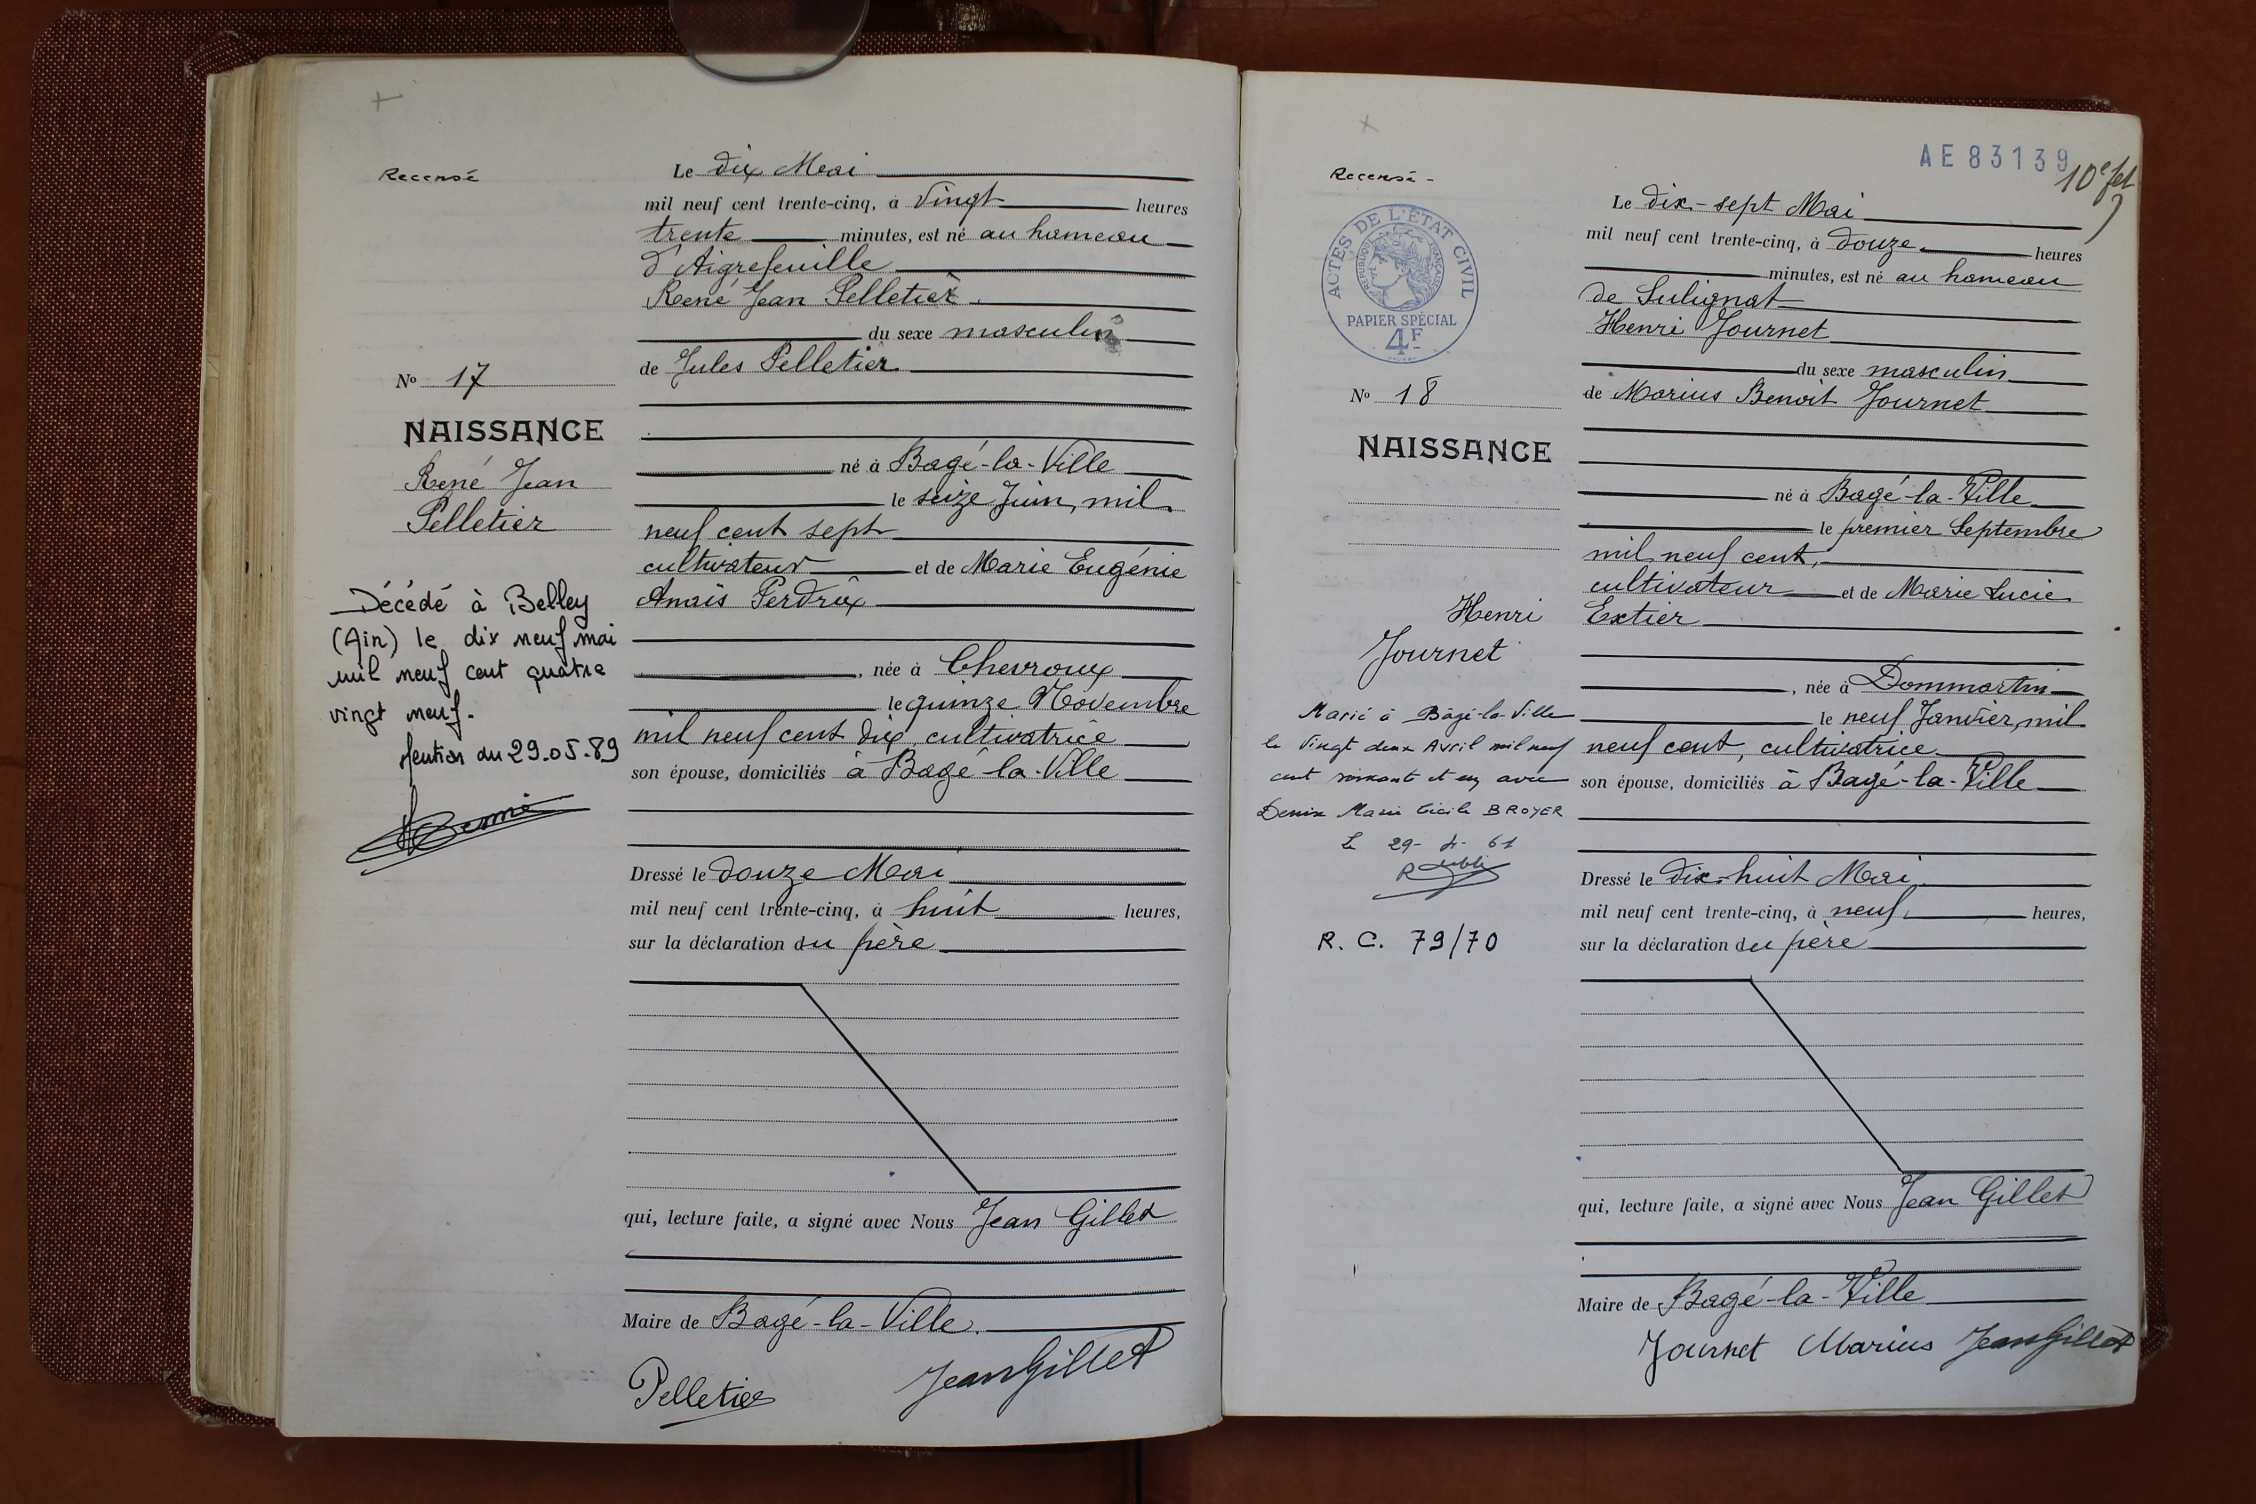 Recensé
Le dix Mai
mil neuf cent trente-cinq, à vingt heures
trente minutes, est né au hameau
d'Aigrefeuille
René Jean Pelletier
du sexe masculin
de Jules Pelletier
né à Bagé-la-Ville
le seize Juin, mil
neuf cent sept
cultivateur et de Marie Eugénie
Anaïs Perdrix
, née à Chevroux
le quinze Novembre
mil neuf cent dix, cultivatrice
son épouse, domiciliés à Bagé-la-Ville
Dressé le douze Mai
mil neuf cent trente-cinq, à huit heures,
sur la déclaration du père
qui, lecture faite, a signé avec Nous Jean Gillet
Maire de Bagé-la-Ville.
Pelletier Jean Gillet
No 17
NAISSANCE
René Jean
Pelletier
Décédé à Belley
(Ain) le dix neuf mai
mil neuf cent quatre
vingt neuf.
Mention du 29.05.89
AE 83139
10e
Recensé -
ACTES DE L'ÉTAT CIVIL
RÉPUBLIQUE FRANÇAISE
PAPIER SPÉCIAL
4F
Le dix-sept Mai
mil neuf cent trente-cinq, à douze heures
minutes, est né au hameau
de Sulignat
Henri Journet
du sexe masculin
de Marius Benoit Journet
né à Bagé-la-Ville
le premier Septembre
mil neuf cent,
cultivateur et de Marie Lucie
Extier
, née à Dommartin
le neuf Janvier, mil
neuf cent, cultivatrice
son épouse, domiciliés à Bagé-la-Ville
Dressé le dix-huit Mai
mil neuf cent trente-cinq, à neuf heures,
sur la déclaration du père
qui, lecture faite, a signé avec Nous Jean Gillet
Maire de Bagé-la-Ville
Journet Marius Jean Gillet
No 18
NAISSANCE
Henri
Journet
Marié à Bâgé-la-Ville
le vingt deux Avril mil neuf
cent soixante et un avec
Denise Marie Cécile BROYER
Le 29-4-61
R. C. 79/70